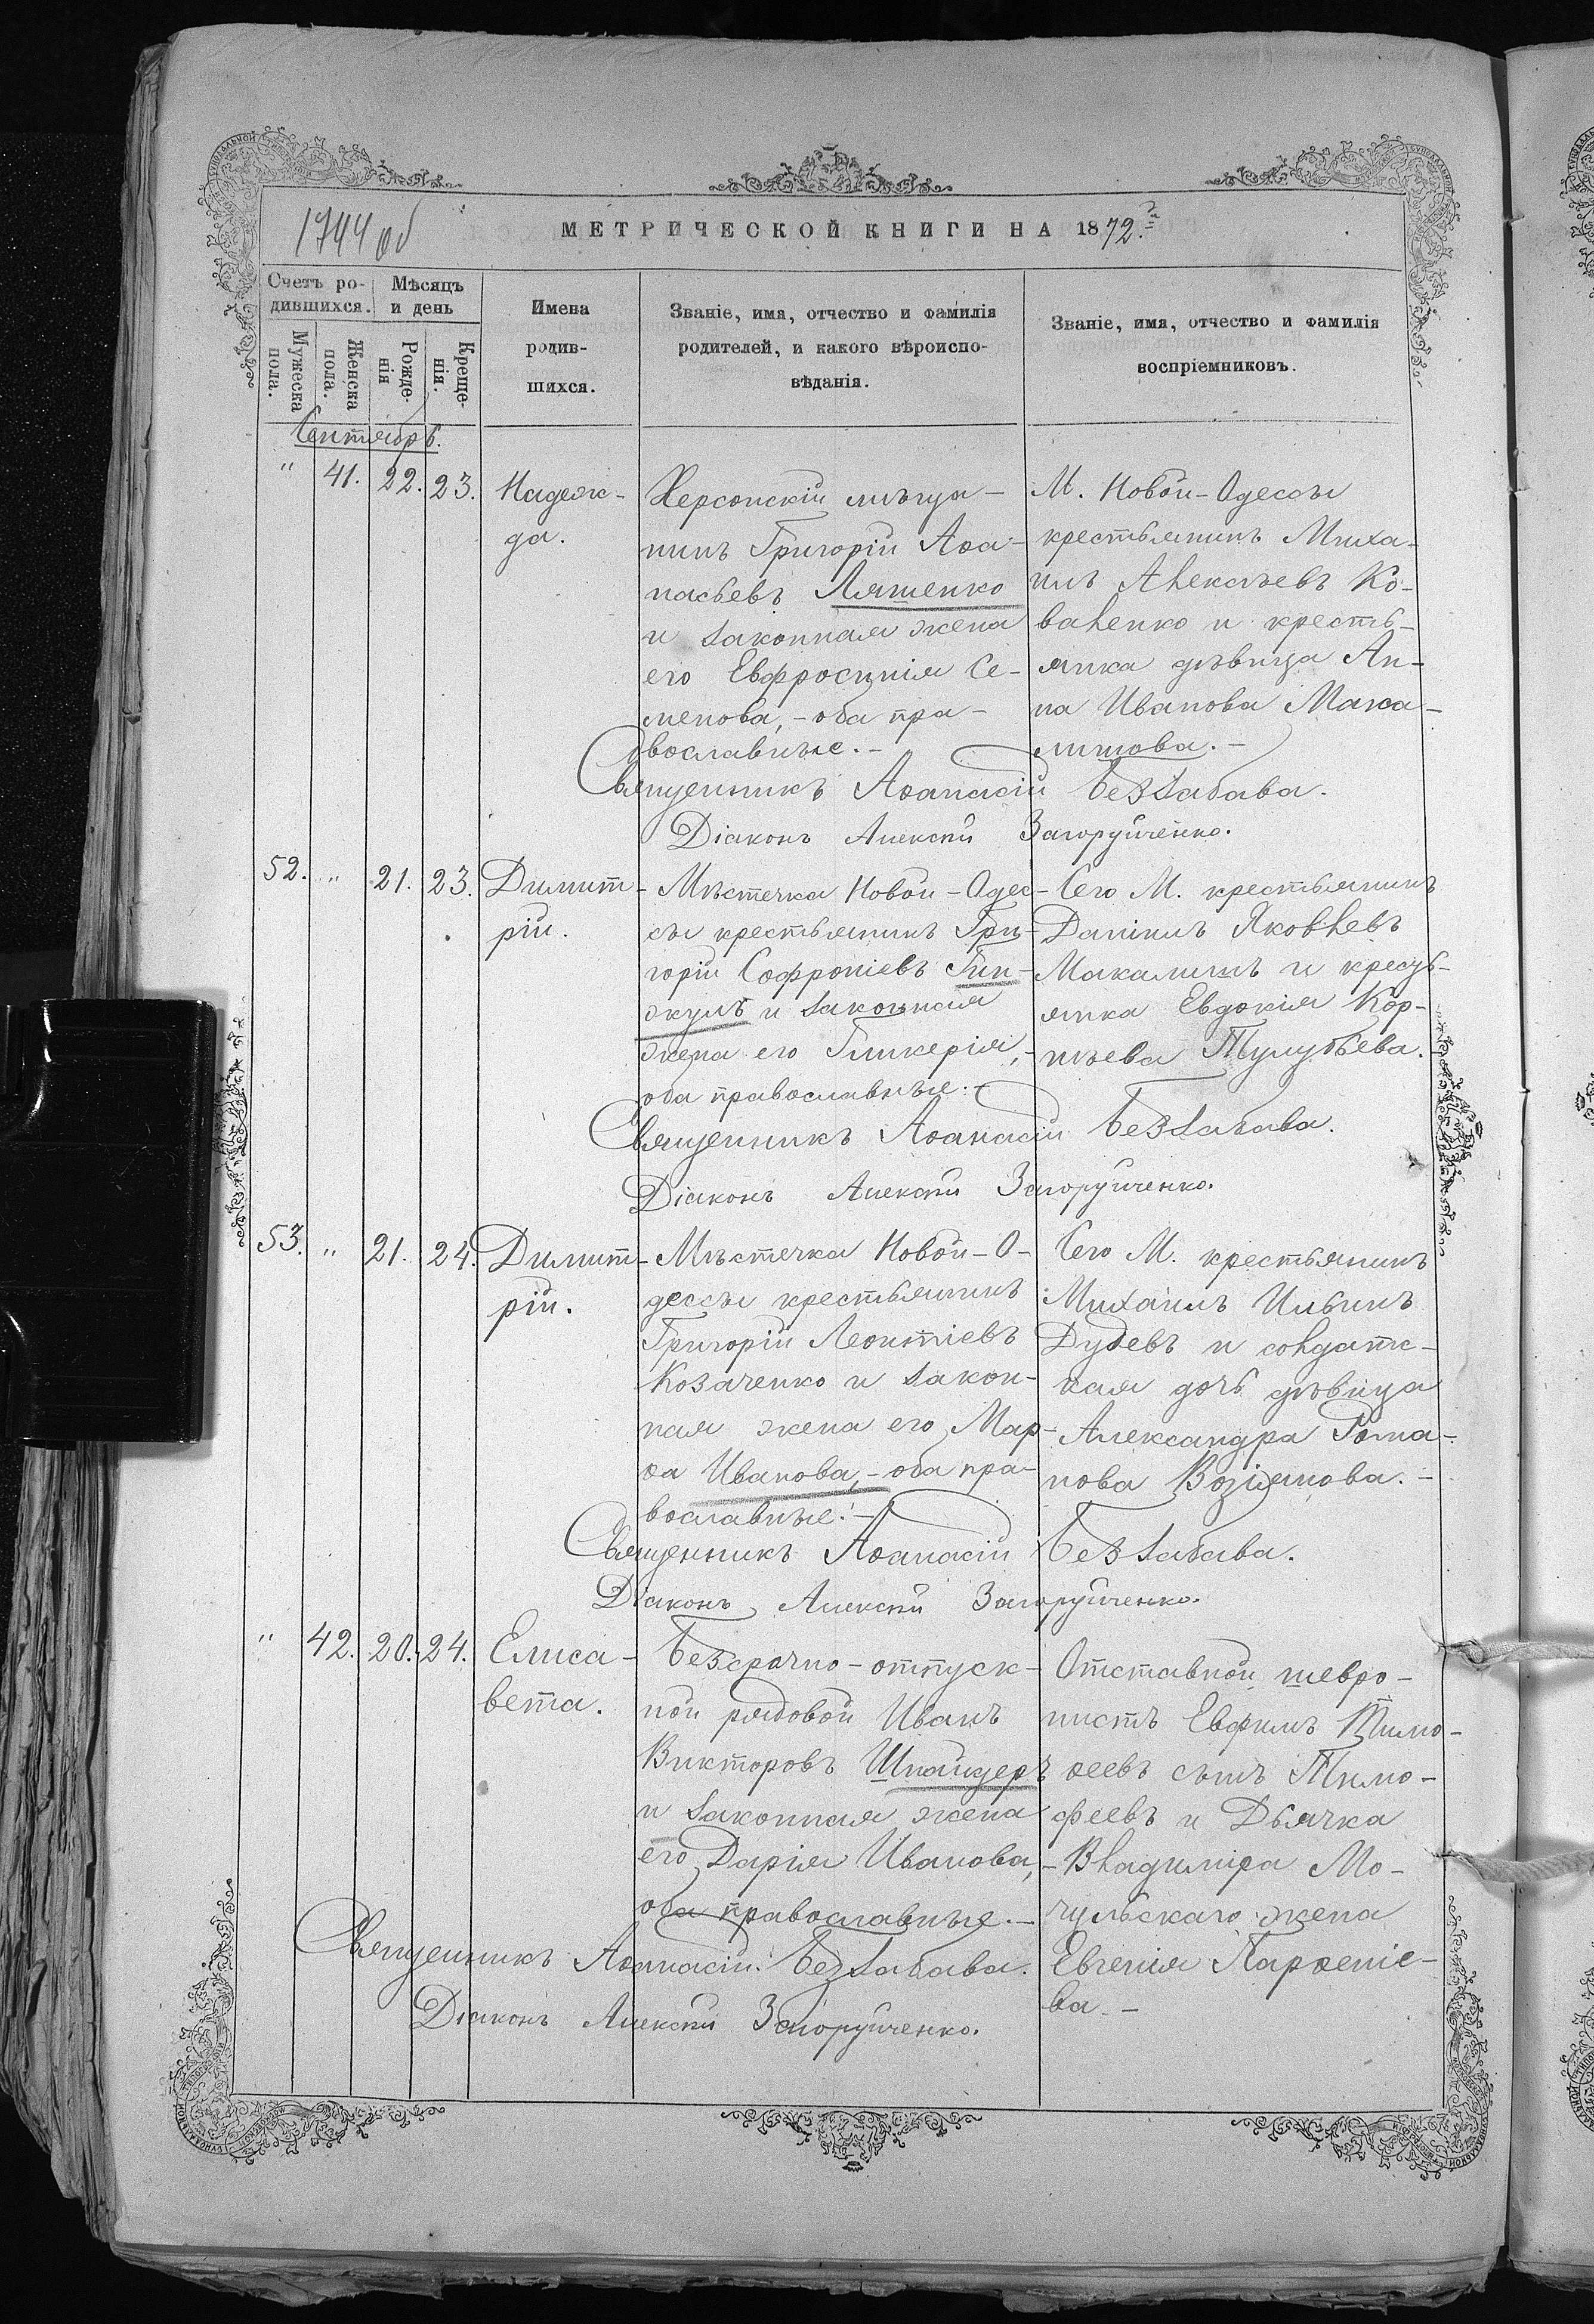 1744 об
МЕТРИЧЕСКОЙ КНИГИ НА 1872.
Счетъ ро-
дившихся.
Мѣсяцъ
и день
Мужеска
пола.
Женска
пола.
Рожде-
нія
Креще-
нія.
Имена
родив-
шихся.
Званіе, имя, отчество и фамилія
родителей, и какого вѣроиспо-
вѣданія.
Званіе, имя, отчество и фамилія
воспріемниковъ.
Сентябрь.
" 41. 22. 23.
Надеж-
да.
Херсонскій мѣща-
нинъ Григорій Аѳа-
насьевъ Ляшенко
и законная жена
его Евфросинія Се-
менова, - оба пра-
вославные. -
М. Новой-Одессы
крестьянинъ Миха-
илъ Алексѣевъ Ко-
валенко и кресть-
янка дѣвица Ан-
на Иванова Мака-
лишова. -
Священникъ Аѳанасій Беззабава.
Діаконъ Алексѣй Загоруйченко.
52. " 21. 23.
Димит-
рій.
Мѣстечка Новой-Одес-
сы крестьянинъ Гри-
горій Софроніевъ Гин-
жулъ и законная
жена его Гликерія, -
оба православные. -
Сего М. крестьянинъ
Даніилъ Яковлевъ
Макалишъ и кресть-
янка Евдокія Кор-
нѣева Тулубьева.
Священникъ Аѳанасій Беззабава.
Діаконъ Алексѣй Загоруйченко.
53. " 21. 24.
Димит-
рій.
Мѣстечка Новой-О-
дессы крестьянинъ
Григорій Леонтіевъ
Козаченко и закон-
ная жена его Мар-
ѳа Иванова, - оба пра-
вославные. -
Сего М. крестьянинъ
Михаилъ Ильинъ
Дубевъ и солдатс-
кая дочь дѣвица
Александра Рома-
нова Возіянова. -
Священникъ Аѳанасій Беззабава.
Діаконъ Алексѣй Загоруйченко.
" 42. 20. 24.
Елиса-
вета.
Безсрочно-отпуск-
ной рядовой Иванъ
Викторовъ Шнайдеръ
и законная жена
его Дарія Иванова, -
оба православные. -
Отставной шевро-
нистъ Евфимъ Тимо-
ѳеевъ сынъ Тимо-
феевъ и Дьячка
Владиміра Мо-
чульскаго жена
Евгенія Парѳеніе-
ва. -
Священникъ Аѳанасій Беззабава.
Діаконъ Алексѣй Загоруйченко.